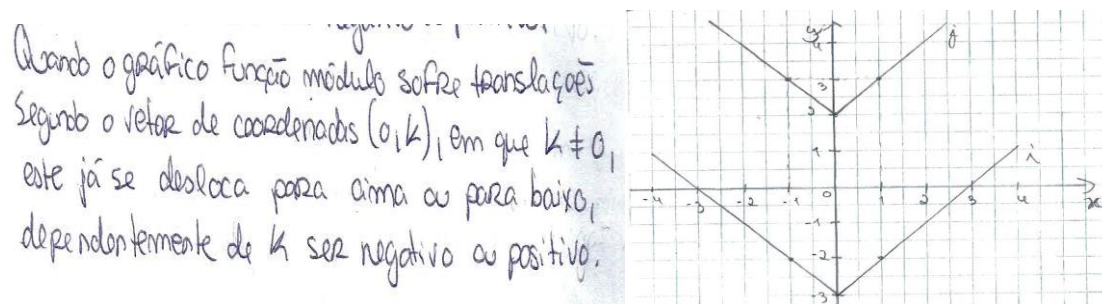 Quando o gráfico função módulo sofre translações
segundo o vetor de coordenadas (0,k), em que k ≠ 0,
este já se desloca para cima ou para baixo,
dependentemente de k ser negativo ou positivo.
y
4
j
3
2
1
i
-4 -3 -2 -1 0 1 2 3 4 x
-1
-2
-3